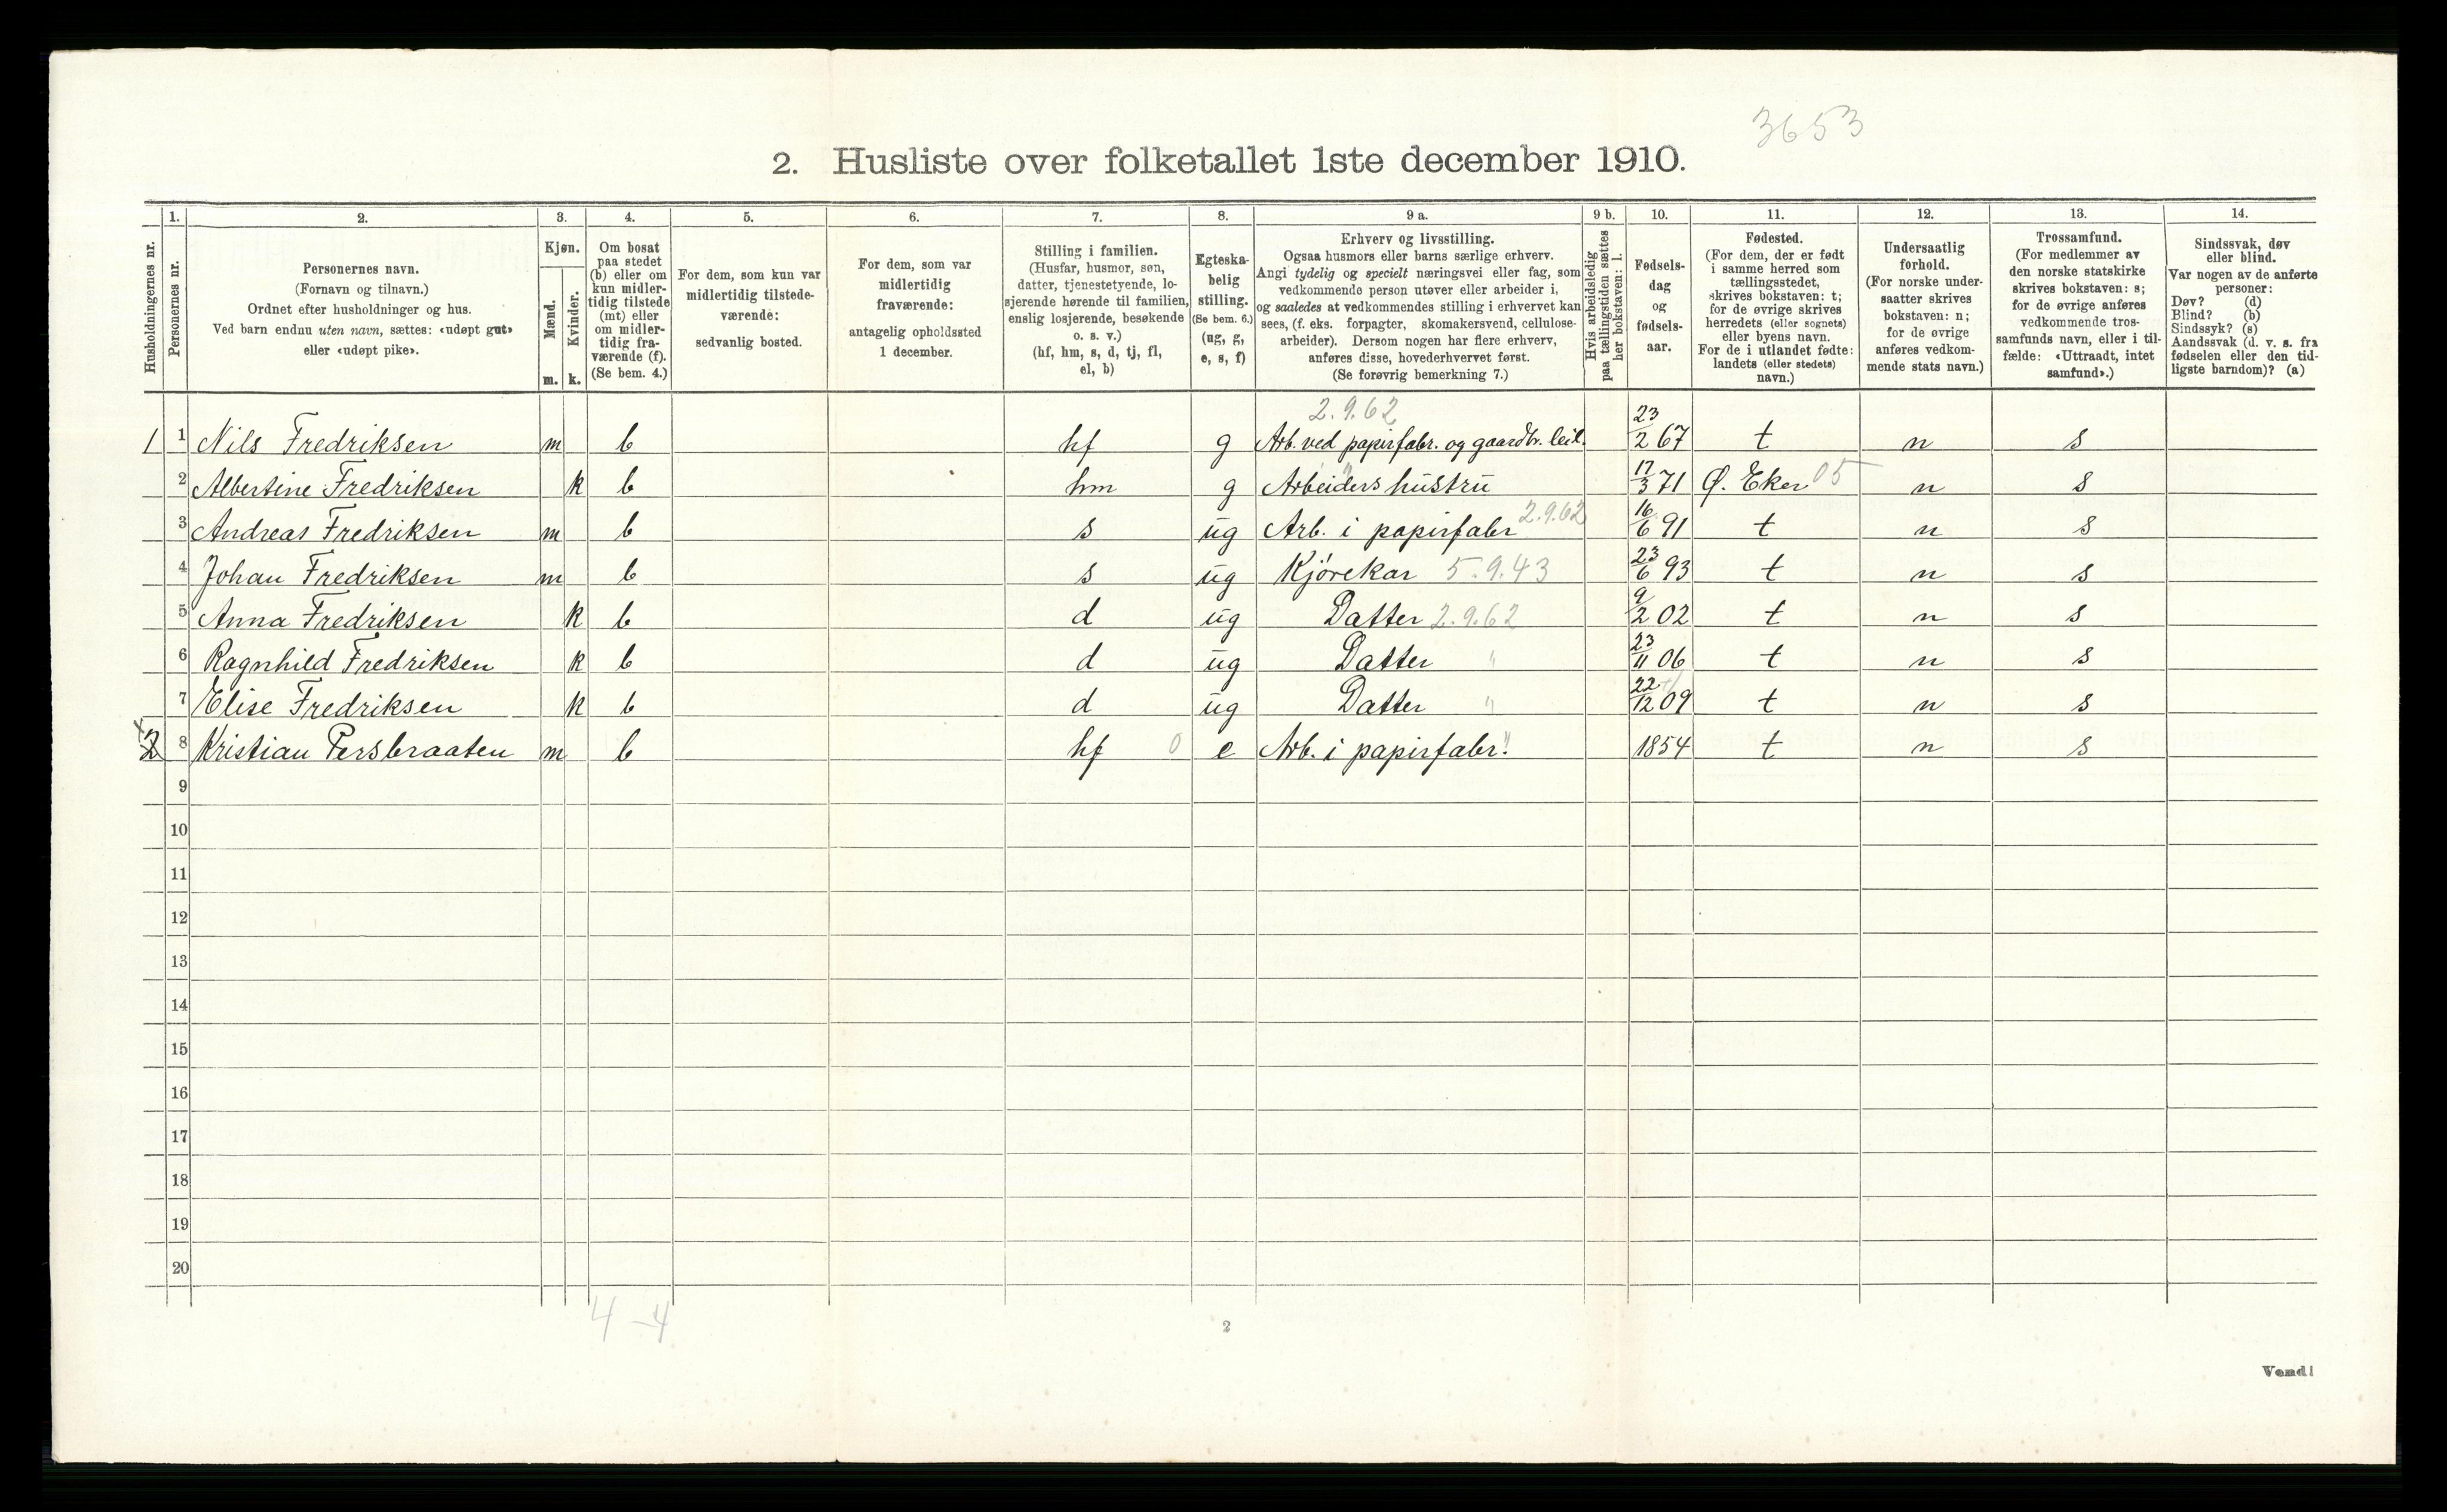 3653
2. Husliste over folketallet 1ste december 1910.
Husholdningernes nr.
1.
Personernes nr.
2.
Personernes navn.
(Fornavn og tilnavn.)
Ordnet efter husholdninger og hus.
Ved barn endnu uten navn, sættes: «udøpt gut»
eller «udøpt pike».
3.
Kjøn.
Mænd.
m.
Kvinder.
k.
4.
Om bosat
paa stedet
(b) eller om
kun midler-
tidig tilstede
(mt) eller
om midler-
tidig fra-
værende (f).
(Se bem. 4.)
5.
For dem, som kun var
midlertidig tilstede-
værende:
sedvanlig bosted.
6.
For dem, som var
midlertidig
fraværende:
antagelig opholdssted
1 december.
7.
Stilling i familien.
(Husfar, husmor, søn,
datter, tjenestetyende, lo-
sjerende hørende til familien,
enslig losjerende, besøkende
o. s. v.)
(hf, hm, s, d, tj, fl,
el, b)
8.
Egteska-
belig
stilling.
(Se bem. 6.)
(ug, g,
e, s, f)
9 a.
Erhverv og livsstilling.
Ogsaa husmors eller barns særlige erhverv.
Angi tydelig og specielt næringsvei eller fag, som
vedkommende person utøver eller arbeider i,
og saaledes at vedkommendes stilling i erhvervet kan
sees, (f. eks. forpagter, skomakersvend, cellulose-
arbeider). Dersom nogen har flere erhverv,
anføres disse, hovederhvervet først.
(Se forøvrig bemerkning 7.)
9 b.
Hvis arbeidsledig
paa tællingstiden sættes
her bokstaven: l.
10.
Fødsels-
dag
og
fødsels-
aar.
11.
Fødested.
(For dem, der er født
i samme herred som
tællingsstedet,
skrives bokstaven: t;
for de øvrige skrives
herredets (eller sognets)
eller byens navn.
For de i utlandet fødte:
landets (eller stedets)
navn.)
12.
Undersaatlig
forhold.
(For norske under-
saatter skrives
bokstaven: n;
for de øvrige
anføres vedkom-
mende stats navn.)
13.
Trossamfund.
(For medlemmer av
den norske statskirke
skrives bokstaven: s;
for de øvrige anføres
vedkommende tros-
samfunds navn, eller i til-
fælde: «Uttraadt, intet
samfund».)
14.
Sindssvak, døv
eller blind.
Var nogen av de anførte
personer:
Døv? (d)
Blind? (b)
Sindssyk? (s)
Aandssvak (d. v. s. fra
fødselen eller den tid-
ligste barndom)? (a)
2.9.62
1 1 Nils Fredriksen m b hf g Arb. ved papirfabr. og gaardbr. leil. 23/2 67 t n s
2 Albertine Fredriksen k b hm g Arbeiders hustru " 17/3 71 Ø. Eker 05 n s
3 Andreas Fredriksen m b s ug Arb. i papirfabr 2.9.62 16/6 91 t n s
4 Johan Fredriksen m b s ug Kjørekar 5.9.43 23/6 93 t n s
5 Anna Fredriksen k b d ug Datter 2.9.62 9/2 02 t n s
6 Ragnhild Fredriksen k b d ug Datter " 23/11 06 t n s
7 Elise Fredriksen k b d ug Datter " 22/12 09 t n s
2 8 Kristian Persbraaten m b hf 0 e Arb. i papirfabr. " 1854 t n s
9
10
11
12
13
14
15
16
17
18
19
20
4 - 4
2
Vend!